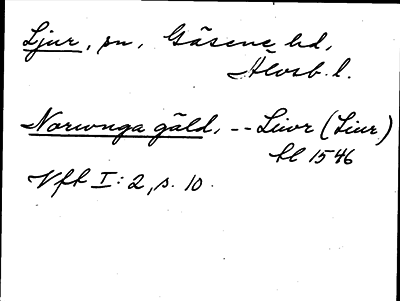 Ljur, sn, Gäsene hd,
Älvsb. l.
Norwnga gäld, -- Liwr (Liur)
kl 1546
Vfk I: 2, s. 10.